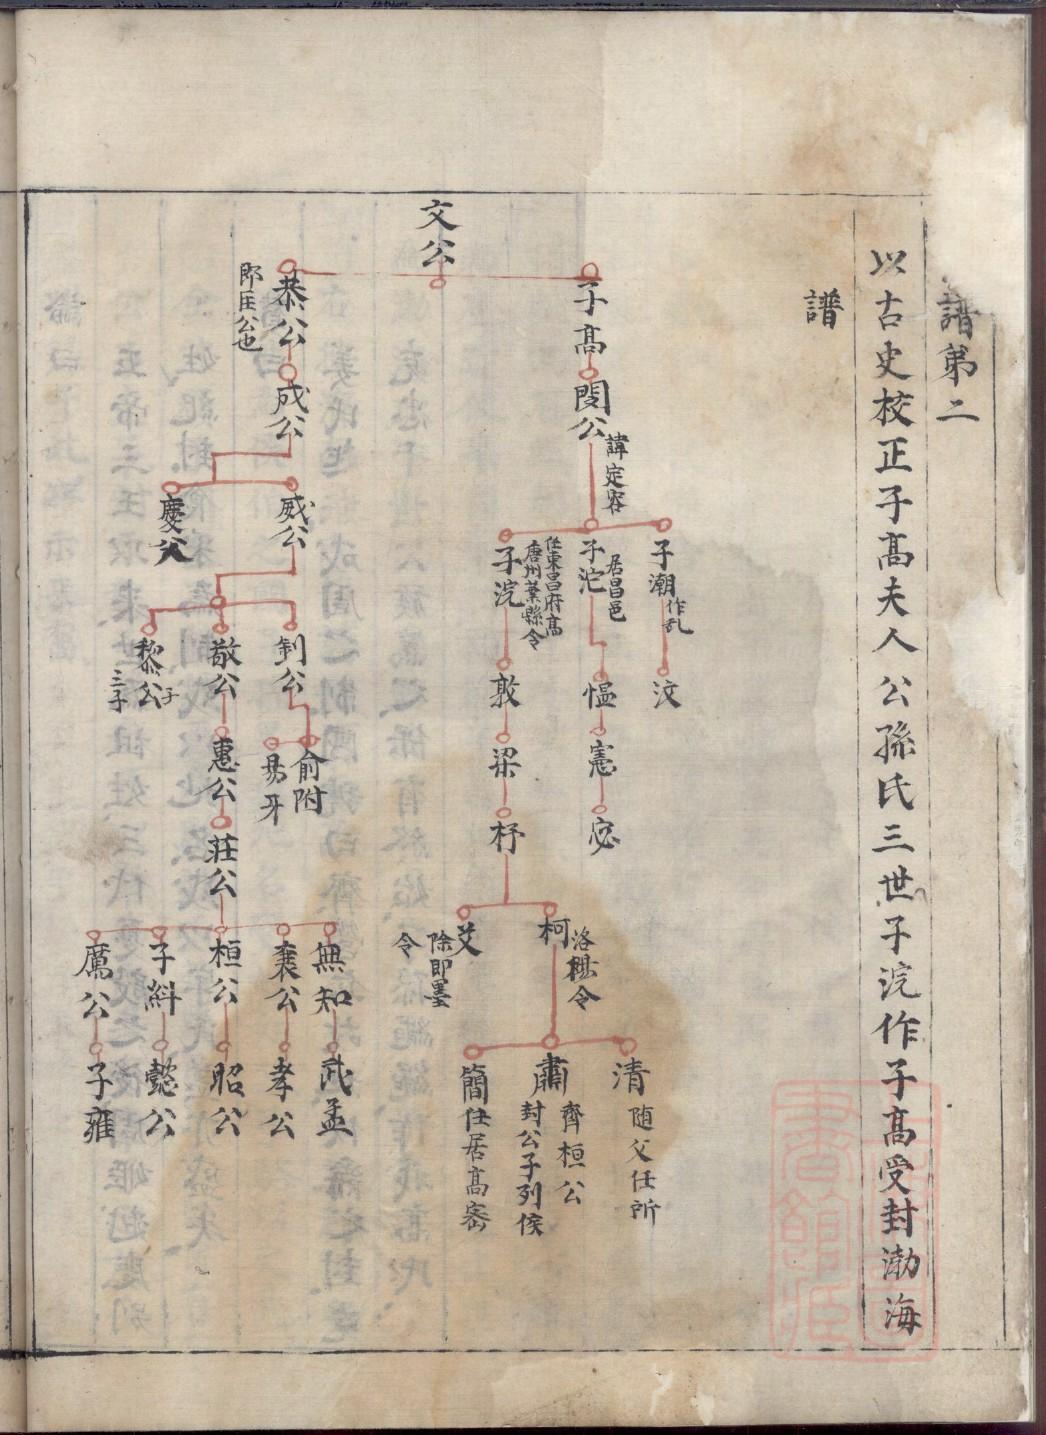 譜第二
以古史校正子髙夫人公孫氏三世子浣作子髙受封渤海
譜
文公
子髙
閔公
諱定容
子潮
作乱
汶
子沱
居昌邑
愠
憲
宓
子浣
任東昌府髙
唐州葉縣令
敦
梁
杼
柯
洛楪令
艾
除即墨
令
清
随父任所
肅
齊桓公
封公子列侯
簡
任居髙宻
恭公
即匡公也
成公
威公
慶父
釗公
俞附
易牙
敬公
惠公
莊公
黎公
子
三子
無知
武孟
襄公
孝公
桓公
昭公
子糾
懿公
厲公
子雍